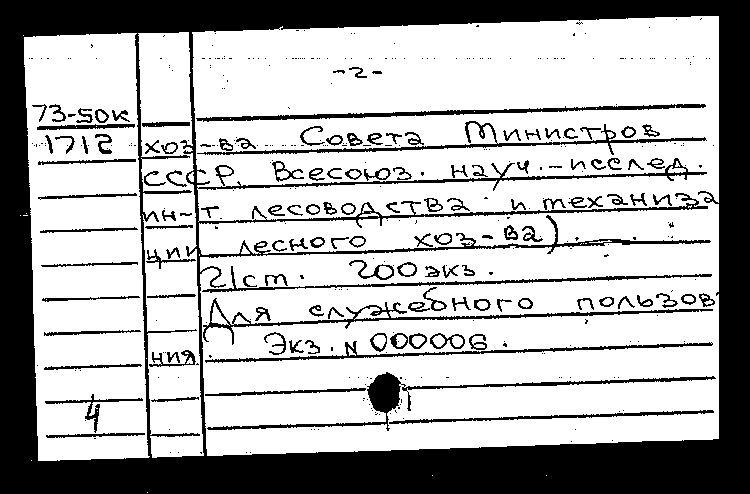 -2-
73-50к
1712 хоз-ва Совета Министров
СССР. Всесоюз. науч.-исслед.
ин-т лесоводства и механиза
ции лесного хоз-ва).
21ст. 200экз.
Для служебного пользов
ния. Экз. N 000006.
4